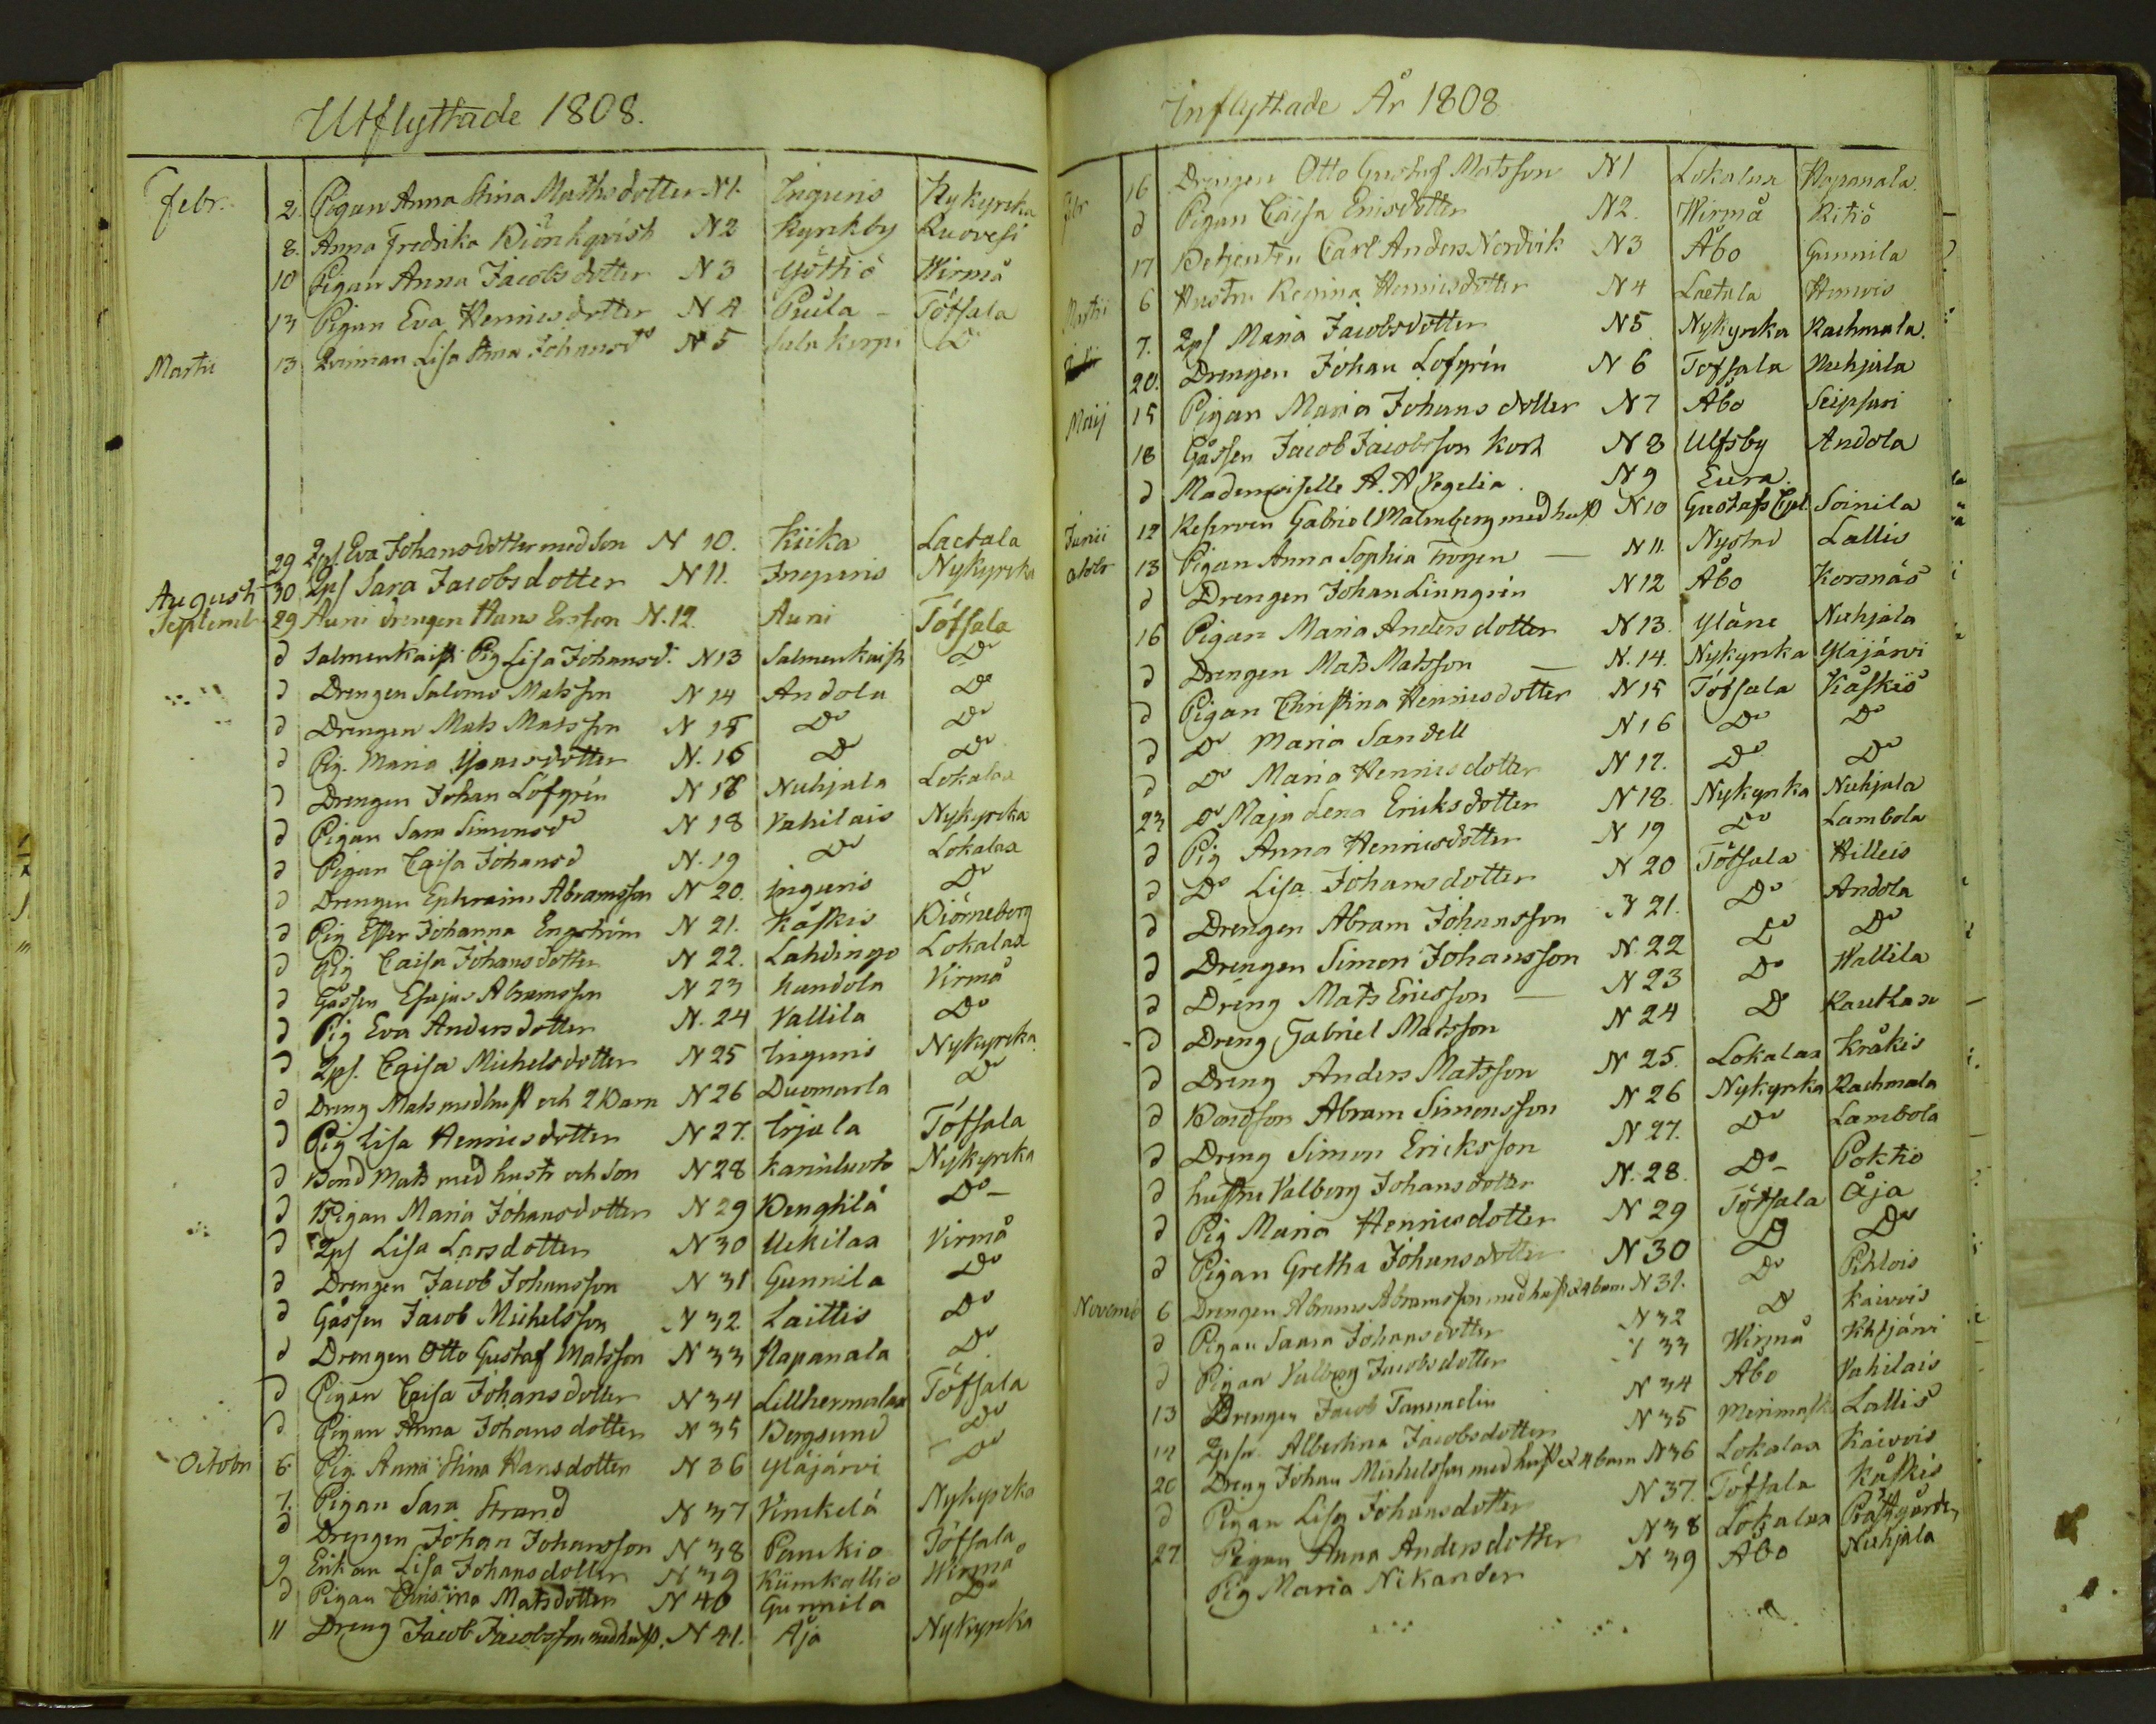 Utflyttade 1808.
Febr. 2. Pigan Anna Stina Mathsdotter N 1. Inguris Nykyrka
8. Anna Fredrika Biörkqvist N 2 Kyrkby Ruovesi
10 Pigan Anna Jacobsdotter N 3 Göttiö Wirmå
13 Pigan Eva Henricsdotter N 4 Puila - Töfsala
Martii 13 Qvinnan Lisa Stina Johansdr N 5 Salakorpi Do
29 Qps. Eva Johansdotter med Son N 10. Kiika Laetala
August 30 Qps Sara Jacobsdotter N 11. Inguris Nykyrka
Septemb 29 Auni drengen Hans Ersson N. 12. Auni Töfsala
d Salmenkaist Pig Lisa Johansd. N 13 Salmenkaist Do
d Drengen Salomo Matsson N 14 Andola Do
d Drengen Mats Matsson N 15 Do Do
d Pig. Maria Göransdotter N. 16 Do Do
d Drengen Johan Löfgrén N 18 Nuhjala Lokalax
d Pigan Sara Simonsdr N 18 Vahilais Nykyrka
d Pigan Caisa Johansd N. 19 Do Lokalax
d Drengen Ephraim Abramsson N 20. Inguris Do
d Pig Ester Johanna Engström N 21. Kåskis Biörneborg
d Pig Caisa Johansdotter N 22. Lahdingo Lokalax
d Gåssen Esajas Abramsson N 23 Kundola Virmå
d Pig Eva Andersdotter N. 24 Vallila Do
d Qps. Caisa Michelsdotter N 25 Inguris Nykyrka
d Dreng Mats med hust och 2 Barn N 26 Duomarla Do
d Pig Lisa Henricsdotter N 27. Irjala Töfsala
d Bond Mats med hustr och Son N 28 Kariniluoto Nykyrka
d Pigan Maria Johansdotter N 29 Benghilä Do -
d Qps Lisa Larsdotter N 30 Uekilax Virmå
d Drengen Jacob Johansson N 31 Gunnila Do
d Gåssen Jacob Michelsson N 32. Laittis Do
d Drengen Otto Gustaf Matsson N 33 Hapanala Do
d Pigan Caisa Johansdotter N 34 Lillhermalax Töfsala
d Pigan Anna Johansdotter N 35 Bergsund Do
Octobr 6 Pig. Anna Stina Hansdotter N 36 Yläjärvi Do
7. Pigan Sara Strand N 37 Vinkelä Nykyrka
d Drengen Johan Johansson N 38 Pamkio Töfsala
9. Enkan Lisa Johansdotter N 39 Kiimkallio Wirmå
d Pigan Christina Matsdotter N 40 Gunnila Do
11 Dreng Jacob Jacobsson med hust. N 41. Åjo Nykyrka
Inflyttade År 1808
Febr 16 Drengen Otto Gustaf Matsson N 1 Lokalax Hapanala.
d Pigan Caisa Ericsdotter N 2. Wirmå Ritiö
17 Betjenten Carl Anders Nordvik N 3 Åbo Gunnila
Martii 6 Hustru Regina Henricsdotter N 4 Laetala
7. Qps Maria Jacobsdotter N 5 Nykyrka Rachmala.
20. Drengen Johan Löfgrén N 6 Tofsala Nuhjala
Maij 15 Pigan Maria Johansdotter N 7 Åbo Seipsari
18 Gåssen Jacob Jacobsson Kort N 8 Ulfsby Andola
d Mademoiselle A. A Vegelia. N 9 Eura.
Junii 12 Reserven Gabriel Malmberg med hust N 10 Gustafs Cpl Soinila
Octobr 13 Pigan Anna Sophia Trogen — N 11. Nystad Lallis
d Drengen Johan Linngrén N 12 Åbo Korsnäs
16 Pigan Maria Andersdotter N 13. Yläne Nuhjala
d Drengen Mats Matsson — N. 14. Nykyrka Yläjärvi
d Pigan Christina Henricsdotter N 15 Töfsala Kåskis
d Do Maria Sandell N 16 Do Do
d Do Maria Henricsdotter N 17. Do Do
23 Do Maja Lena Ericksdotter N 18. Nykyrka Nuhjala
d Pig Anna Henricsdotter N 19 Do Lambola
d Do Lisa Johansdotter N 20 Töfsala Hilleis
d Drengen Abram Johansson N 21. Do Andola
d Drengen Simon Johansson N. 22 Do Do
d Dreng Mats Ericsson — N 23 Do Wallila
d Dreng Gabriel Matsson N 24 Do Rautkax
d Dreng Anders Matsson N 25. Lokalax Kråkis
d Bondson Abram Simonsson N 26 Nykyrka Rachmala
d Dreng Simon Ericksson N 27. Do Lambola
d hustru Valborg Johansdotter N. 28. Do - Poktio
d Pig Maria Henricsdotter N 29 Töfsala Åja
d Pigan Gretha Johansdotter N 30 Do Do
Novemb 6 Drengen Abram Abramsson med hust & 4 barn N 31. Do Pihlois
d Pigan Saara Johansdotter N 32 Do Kaivois
d Pigan Valborg Jacobsdotter N 33 Wirmå Ahtjärvi
13 Drengen Jacob Tammelin N 34 Åbo Vahilais
14 Qpsn Albertina Jacobsdotter N 35 Merimask Lallis
20 Dreng Johan Michelsson med hust & 4 barn N 36 Lokalax Kaivois
d Pigan Lisa Johansdotter N 37. Töfsala Kåskis
27 Pigan Anna Andersdotter N 38 Lokalax Prästgården
Pig Maria Nikander N 39 Åbo Nuhjala